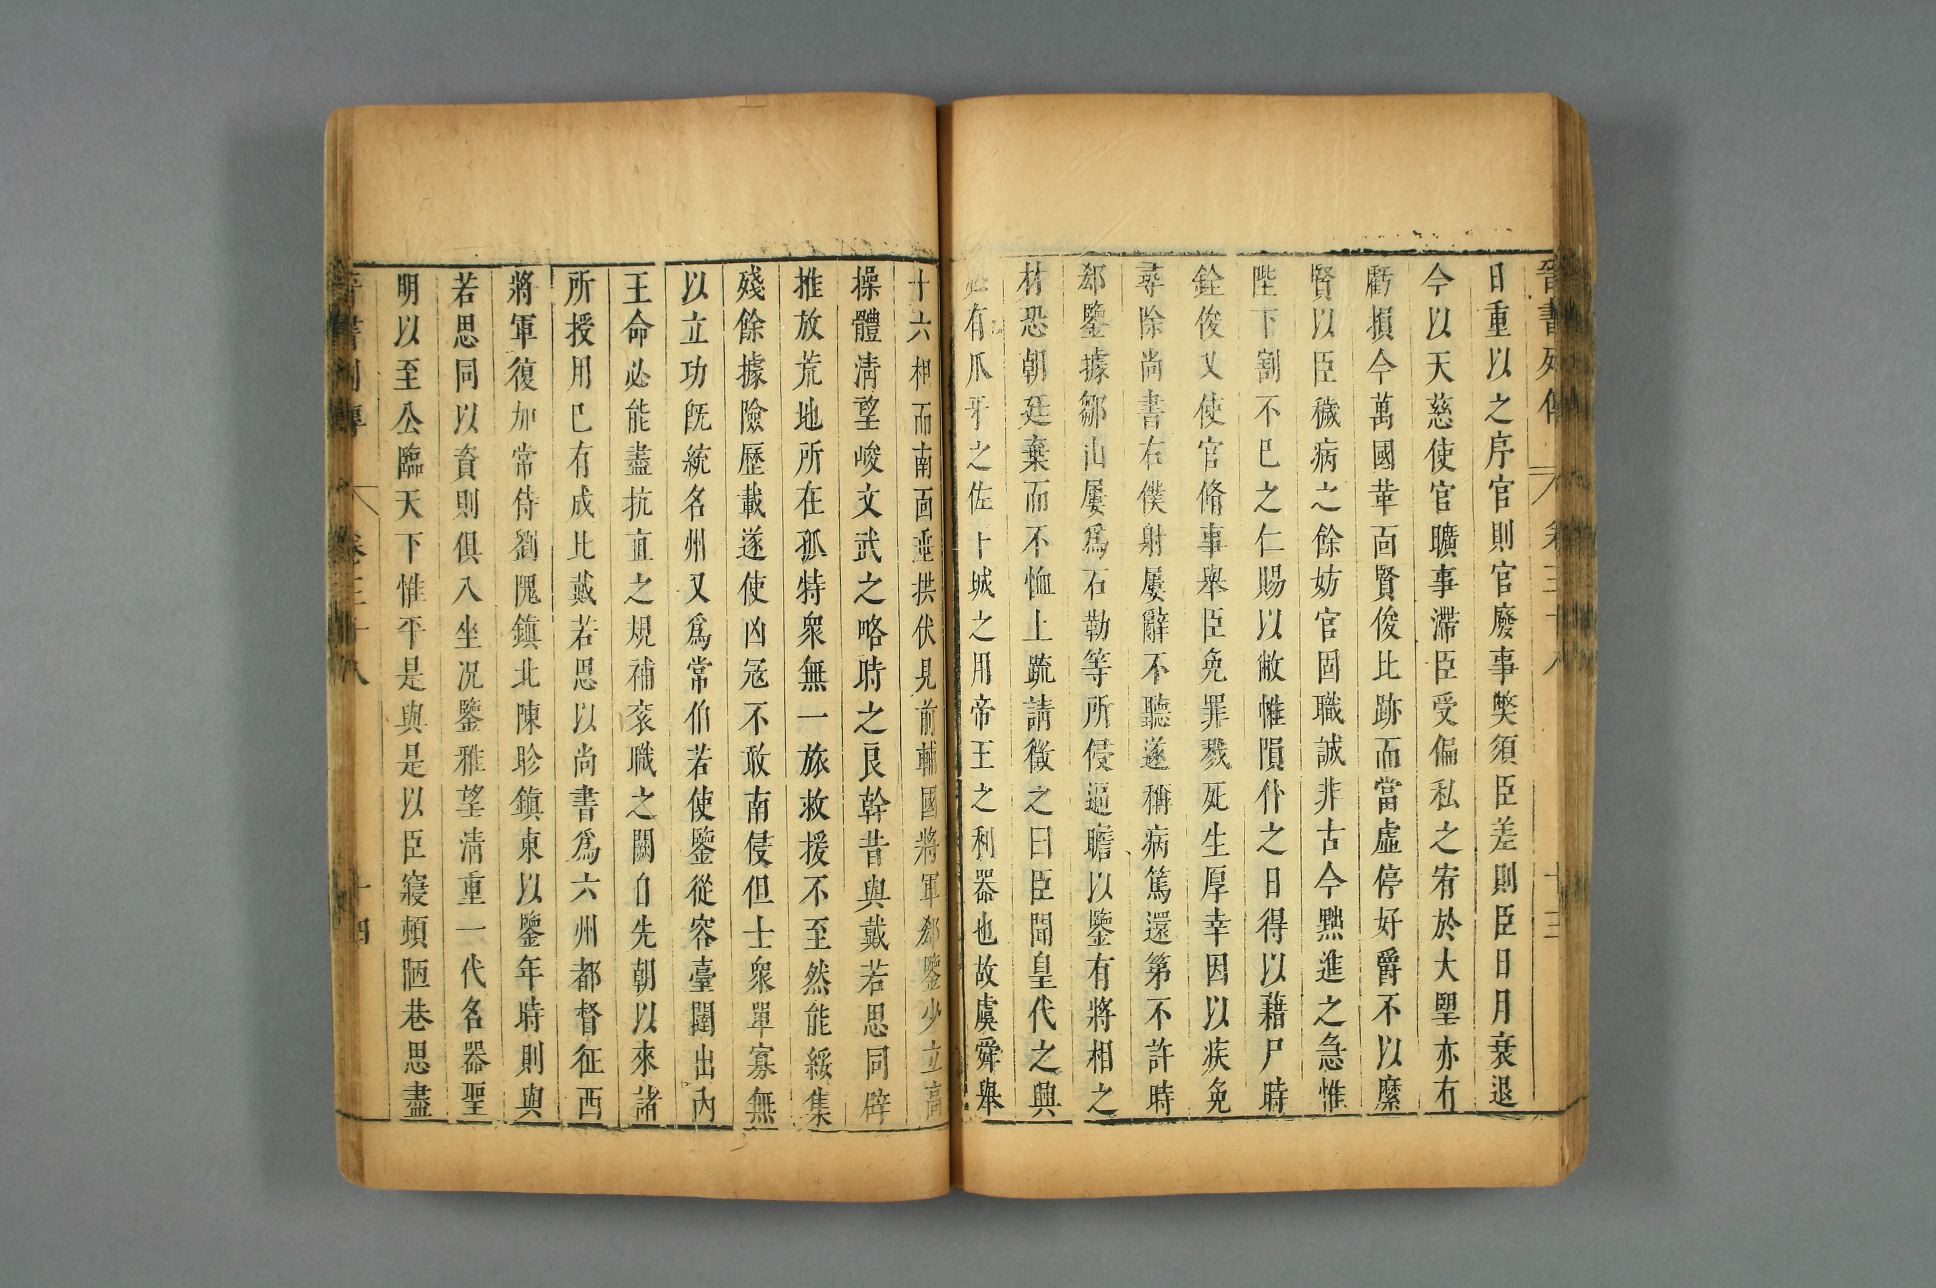 晉書列傳 卷三十八 十三
日重以之序官則官廢事獘須臣差則臣日月衰退
今以天慈使官曠事滯臣受偏私之宥於大望亦有
虧損今萬國革面賢俊比跡而當虛停好爵不以縻
賢以臣穢病之餘妨官固職誠非古今黜進之急惟
陛下割不已之仁賜以敝惟隕仆之日得以藉尸時
銓俊又使官脩事舉臣免罪戮死生厚幸因以疾免
尋除尚書右僕射屢辭不聽遂稱病篤還第不許時
郄鑒據鄒山屢爲石勒等所侵逼瞻以鑒有將相之
材恐朝廷棄而不恤上疏請徵之曰臣聞皇代之興
必有爪牙之佐十城之用帝王之利器也故虞舜舉
十六相而南面垂拱伏見前輔國將軍郄鑒少立高
操體清望峻文武之略時之良幹昔與戴若思同辟
推放荒地所在孤特衆無一旅救援不至然能綏集
殘餘據險歷載遂使凶冦不敢南侵但士衆單寡無
以立功旣統名州又爲常伯若使鑒從容臺闥出內
王命必能盡抗直之規補衮職之闕自先朝以來諸
所授用已有成比戴若思以尚書爲六州都督征西
將軍復加常侍劉隗鎮北陳眕鎮東以鑒年時則與
若思同以資則俱入坐况鑒雅望清重一代名器聖
明以至公臨天下惟平是與是以臣寢頓陋巷思盡
晉書列傳 卷三十八 十四